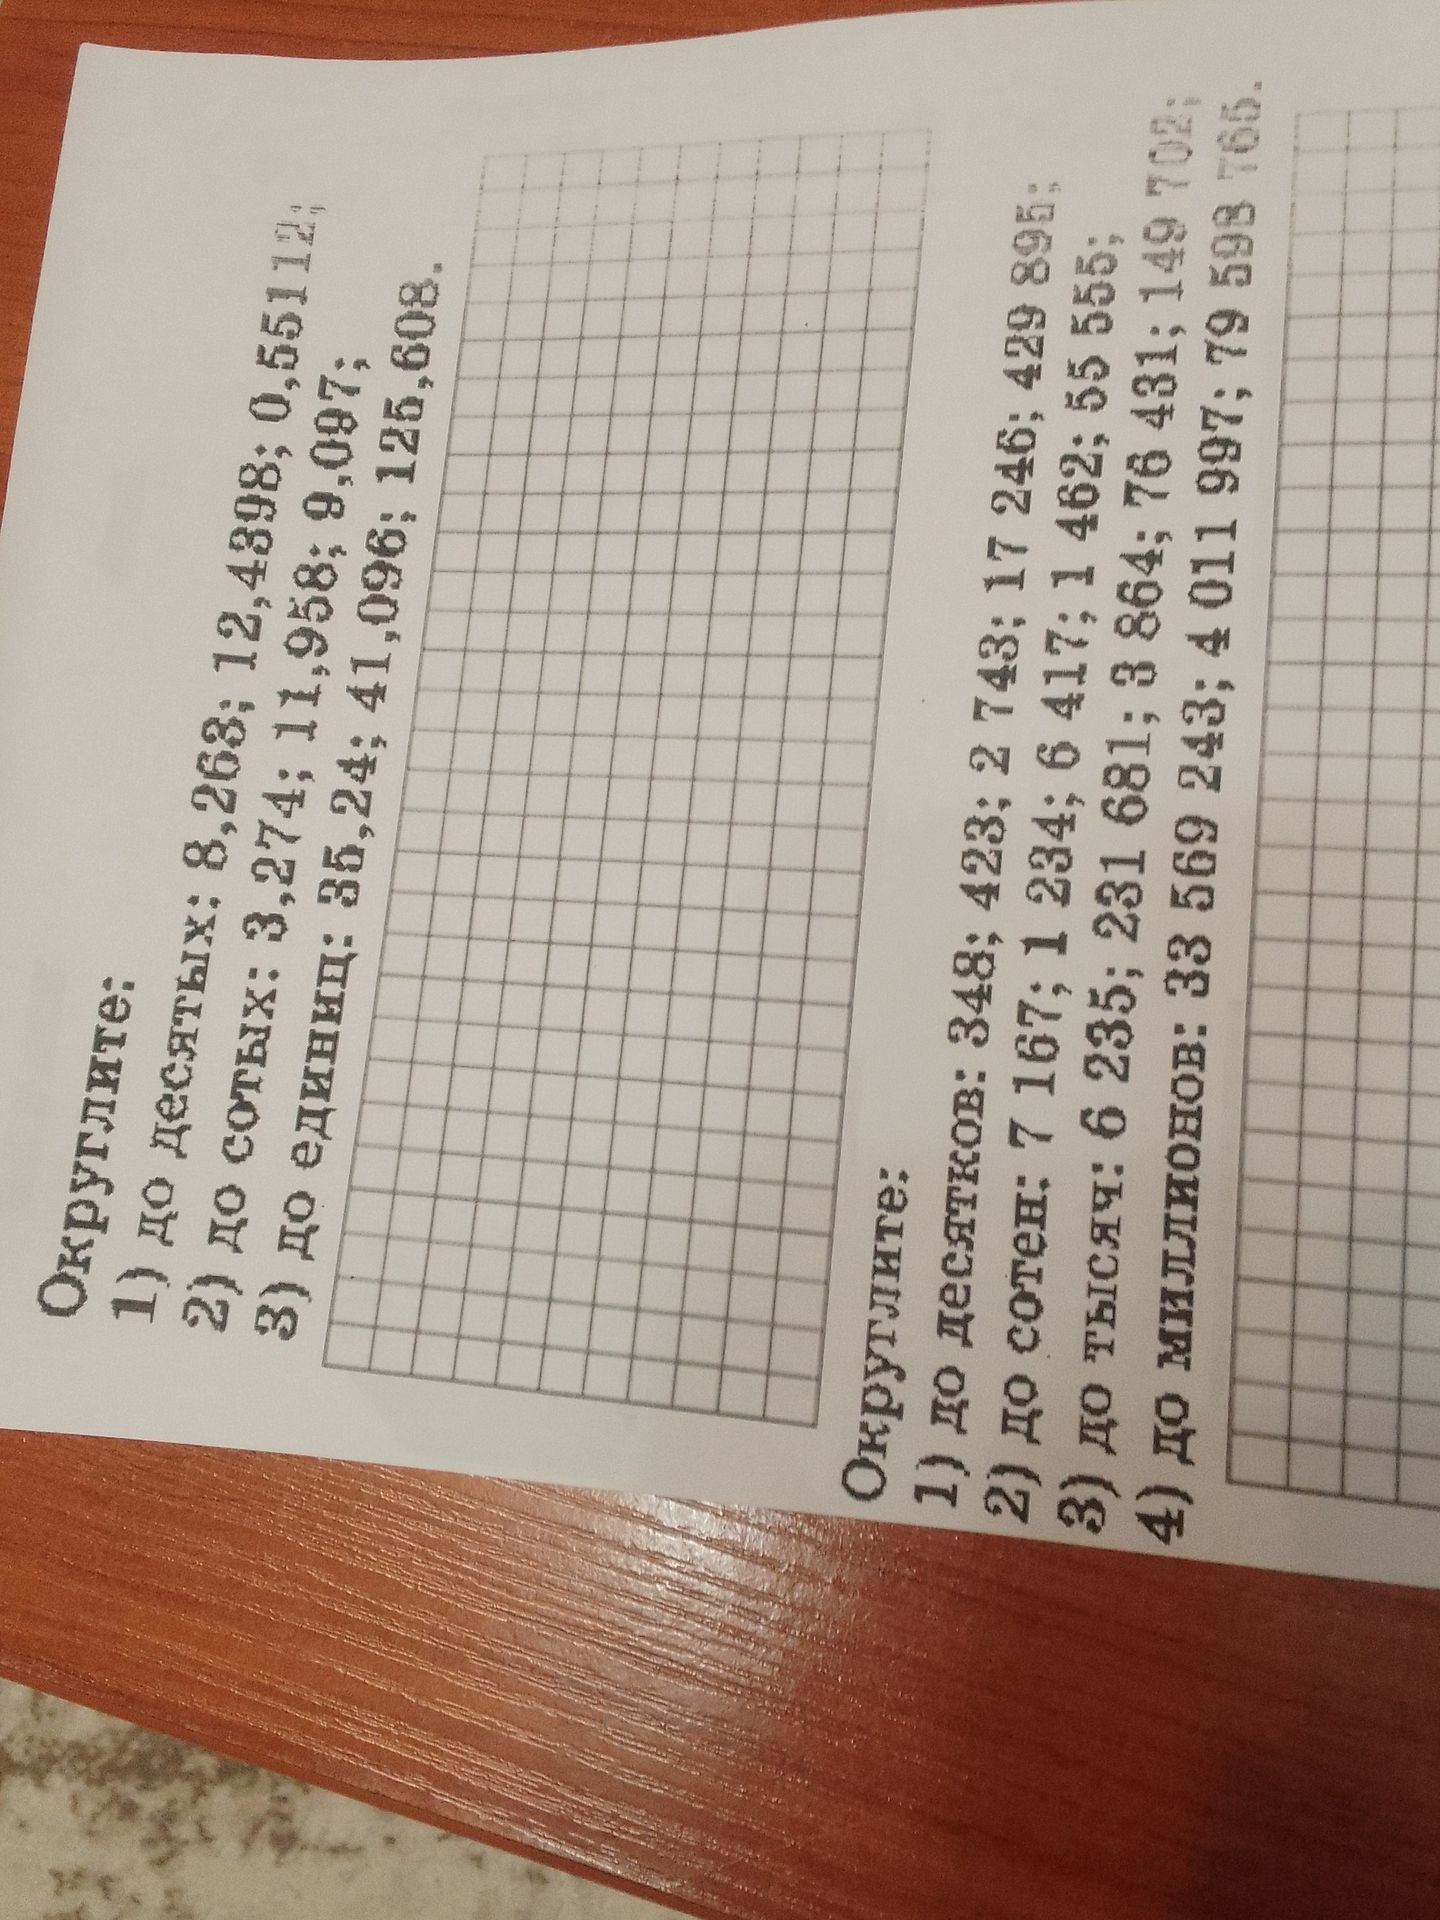 Округлите:
1) до десятых: 8,263; 12,4398; 0,55112;
2) до сотых: 3,274; 11,958; 9,097;
3) до единиц: 35,24; 41,096; 125,608.
Округлите:
1) до десятков: 348; 423; 2 743; 17 246; 429 895;
2) до сотен: 7 167; 1 234; 6 417; 1 462; 55 555;
3) до тысяч: 6 235; 231 681; 3 864; 76 431; 149 702;
4) до миллионов: 33 569 243; 4 011 997; 79 598 765.